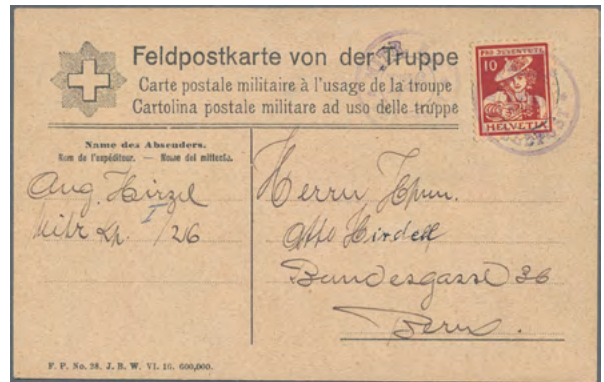 Feldpostkarte von der Truppe
Carte postale militaire à l'usage de la troupe
Cartolina postale militare ad uso delle truppe
PRO JUVENTUTE
10
HELVETIA
Name des Absenders.
Nom de l'expéditeur. — Nome del mittente.
Aug. Hirzel
Mitr Kp. I/26
Herrn Hptm.
Otto
Bundesgasse 36
Bern.
F. P. No. 28. J. B. W. VI. 16. 600,000.